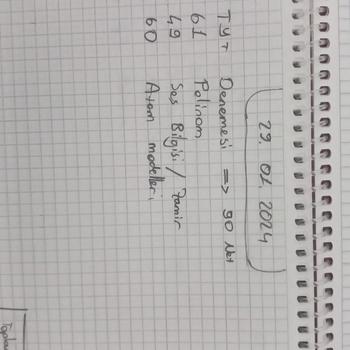 29.01.2024
TYT Denemesi => 90 Net
61 Polinom
49 Ses Bilgisi / Zamir
60 Atom modelleri